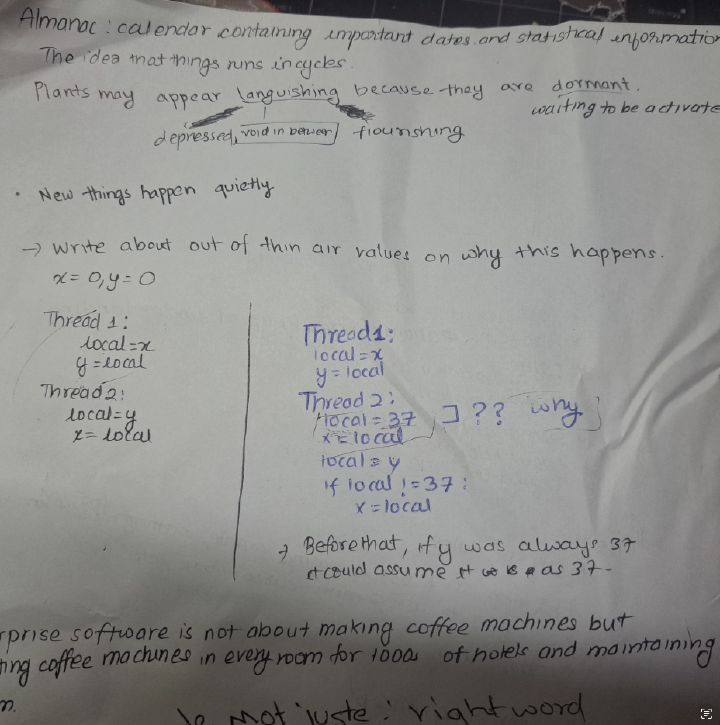 Almanac: calendar containing important dates and statistical informatio
The idea that things runs in cycles.
Plants may appear languishing because they are dormant.
waiting to be activate
depressed, void in between flourishing
• New things happen quietly
→ Write about out of thin air values on why this happens.
x = 0, y = 0
Thread 1:
local = x
y = local
Thread 2:
local = y
x = local
Thread 1:
local = x
y = local
Thread 2:
local = 37
x = local
] ?? why
local = y
if local != 37:
x = local
→ Before that, if y was always 37
it could assume it as 37.
rprise software is not about making coffee machines but
ting coffee machines in every room for 1000s of hotels and maintaining
m.
le mot juste: right word